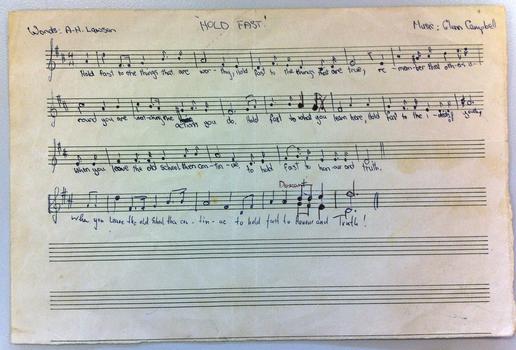 Words: A.H. Lawson 'HOLD FAST!' Music: Glenn Campbell
Hold fast to the things that are wor - thy, Hold fast to the things that are true, re - mem - ber that oth - ers a -
round you are watching the action you do. Hold fast to what you learn here, Hold fast to the i - deals
When you leave the old school then con - tin - ue to hold fast to hon - our and truth.
Descant
When you leave the old school then con - tin - ue to hold fast to Honour and Truth!